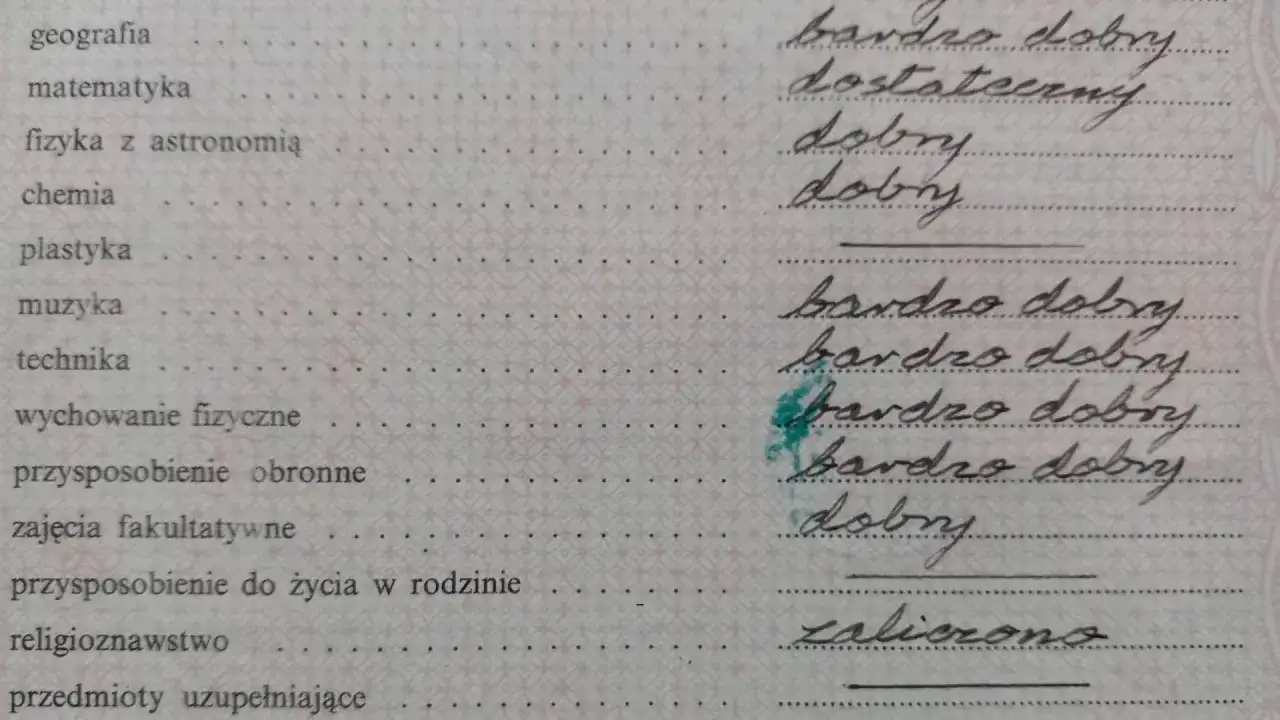 geografia . . . . . . . . . . . . . . . . . . . . . . bardzo dobry
matematyka . . . . . . . . . . . . . . . . . . . . dostateczny
fizyka z astronomią . . . . . . . . . . . . . . . . dobry
chemia . . . . . . . . . . . . . . . . . . . . . . . dobry
plastyka . . . . . . . . . . . . . . . . . . . . . . . ————
muzyka . . . . . . . . . . . . . . . . . . . . . . . bardzo dobry
technika . . . . . . . . . . . . . . . . . . . . . . . bardzo dobry
wychowanie fizyczne . . . . . . . . . . . . . . . . bardzo dobry
przysposobienie obronne . . . . . . . . . . . . . bardzo dobry
zajęcia fakultatywne . . . . . . . . . . . . . . . . dobry
przysposobienie do życia w rodzinie . . . . . . . ————
religioznawstwo . . . . . . . . . . . . . . . . . . zaliczono
przedmioty uzupełniające . . . . . . . . . . . . . ————